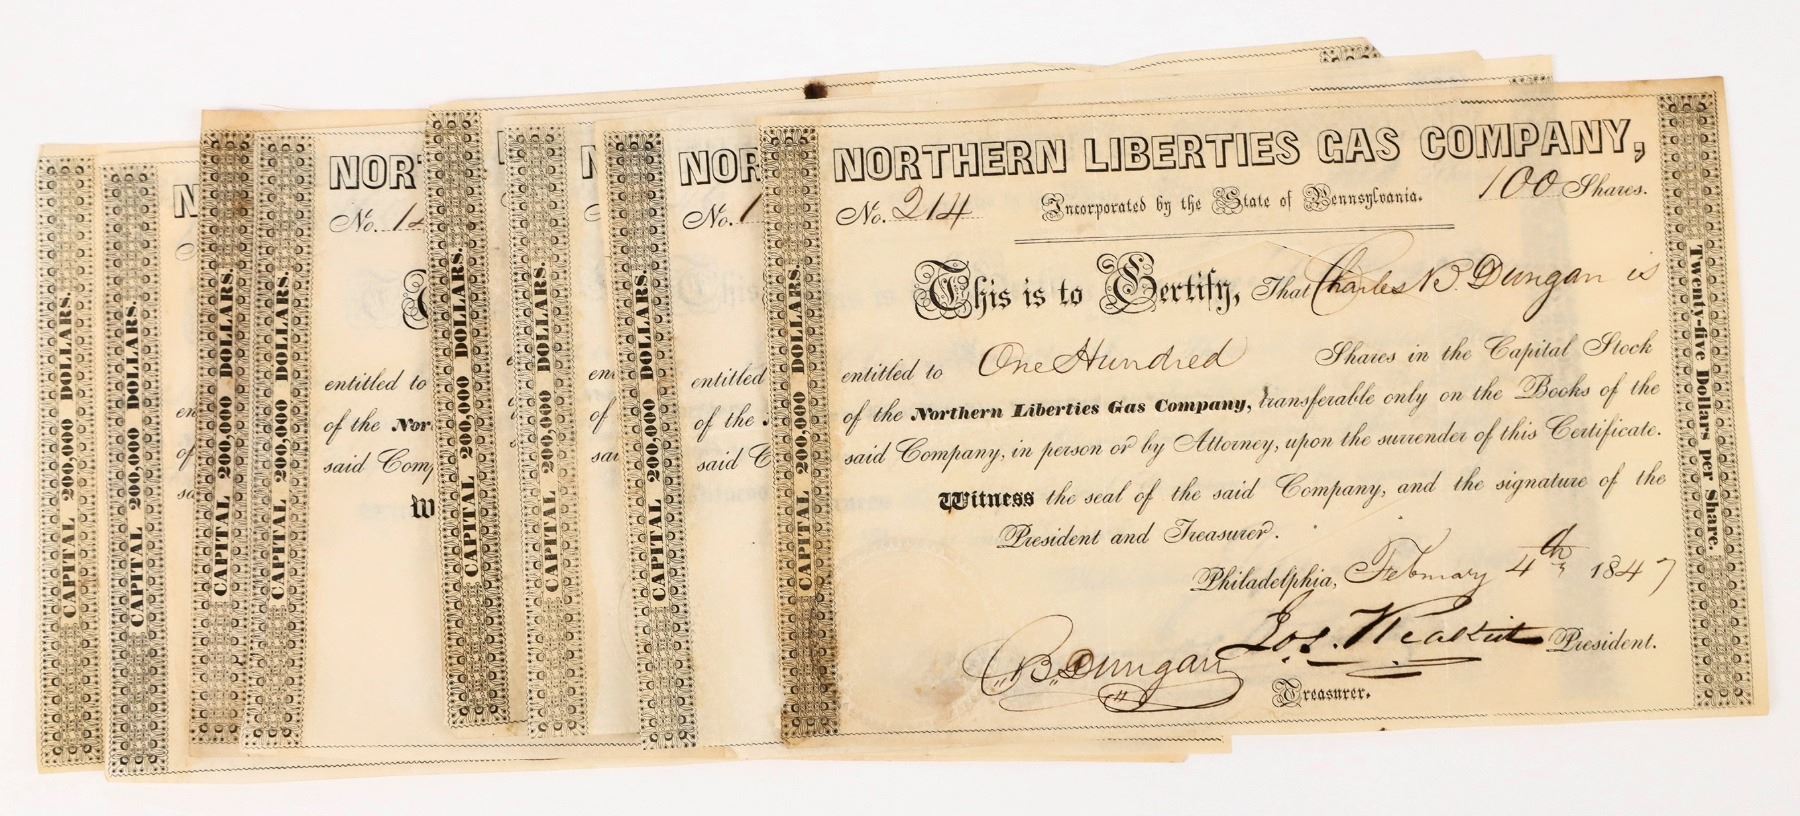 CAPITAL 200,000 DOLLARS.
CAPITAL 200,000 DOLLARS.
N
en
of
sa
CAPITAL 200,000 DOLLARS.
CAPITAL 200,000 DOLLARS.
NOR
No. 1
entitled to
of the Nor
said Comp
W
CAPITAL 200,000 DOLLARS.
CAPITAL 200,000 DOLLARS.
N
en
of
sai
CAPITAL 200,000 DOLLARS.
NOR
No. 1
entitled
of the
said C
CAPITAL 200,000 DOLLARS.
NORTHERN LIBERTIES GAS COMPANY,
No. 214 Incorporated by the State of Pennsylvania. 100 Shares.
This is to Certify, That Charles B. Dungan is
entitled to One Hundred Shares in the Capital Stock
of the Northern Liberties Gas Company, transferable only on the Books of the
said Company, in person or by Attorney, upon the surrender of this Certificate.
Witness the seal of the said Company, and the signature of the
President and Treasurer.
Philadelphia, February 4th 1847
Jos. President.
C B Dungan Treasurer.
Twenty-five Dollars per Share.